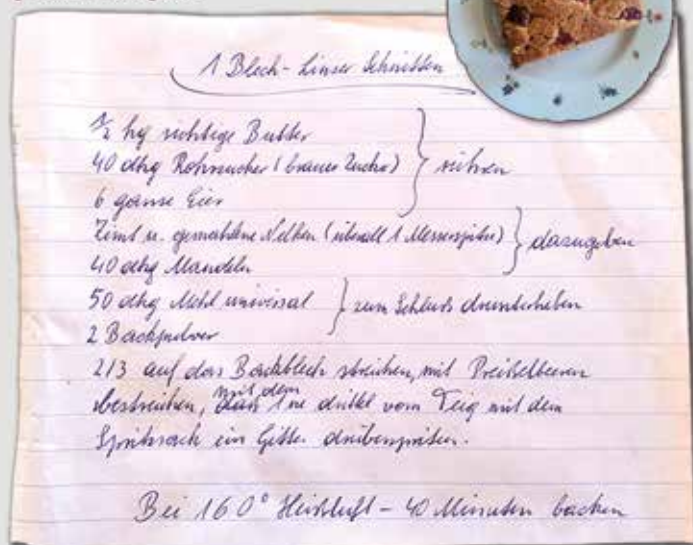 1 Blech - Linser Schnitten
1/2 kg richtige Butter
40 dkg Rohrzucker (brauner Zucker) } rühren
6 ganze Eier
Zimt u. gemahlene Nelken (überall 1 Messerspitze) } dazugeben
40 dkg Mandeln
50 dkg Mehl universal } zum Schluß drunterheben
2 Backpulver
2/3 auf das Backblech streichen, mit Preißelbeeren
bestreichen, mit dem 1ne drittel vom Teig mit dem
Spritzsack ein Gitter drüberspritzen.
Bei 160° Heißluft - 40 Minuten backen